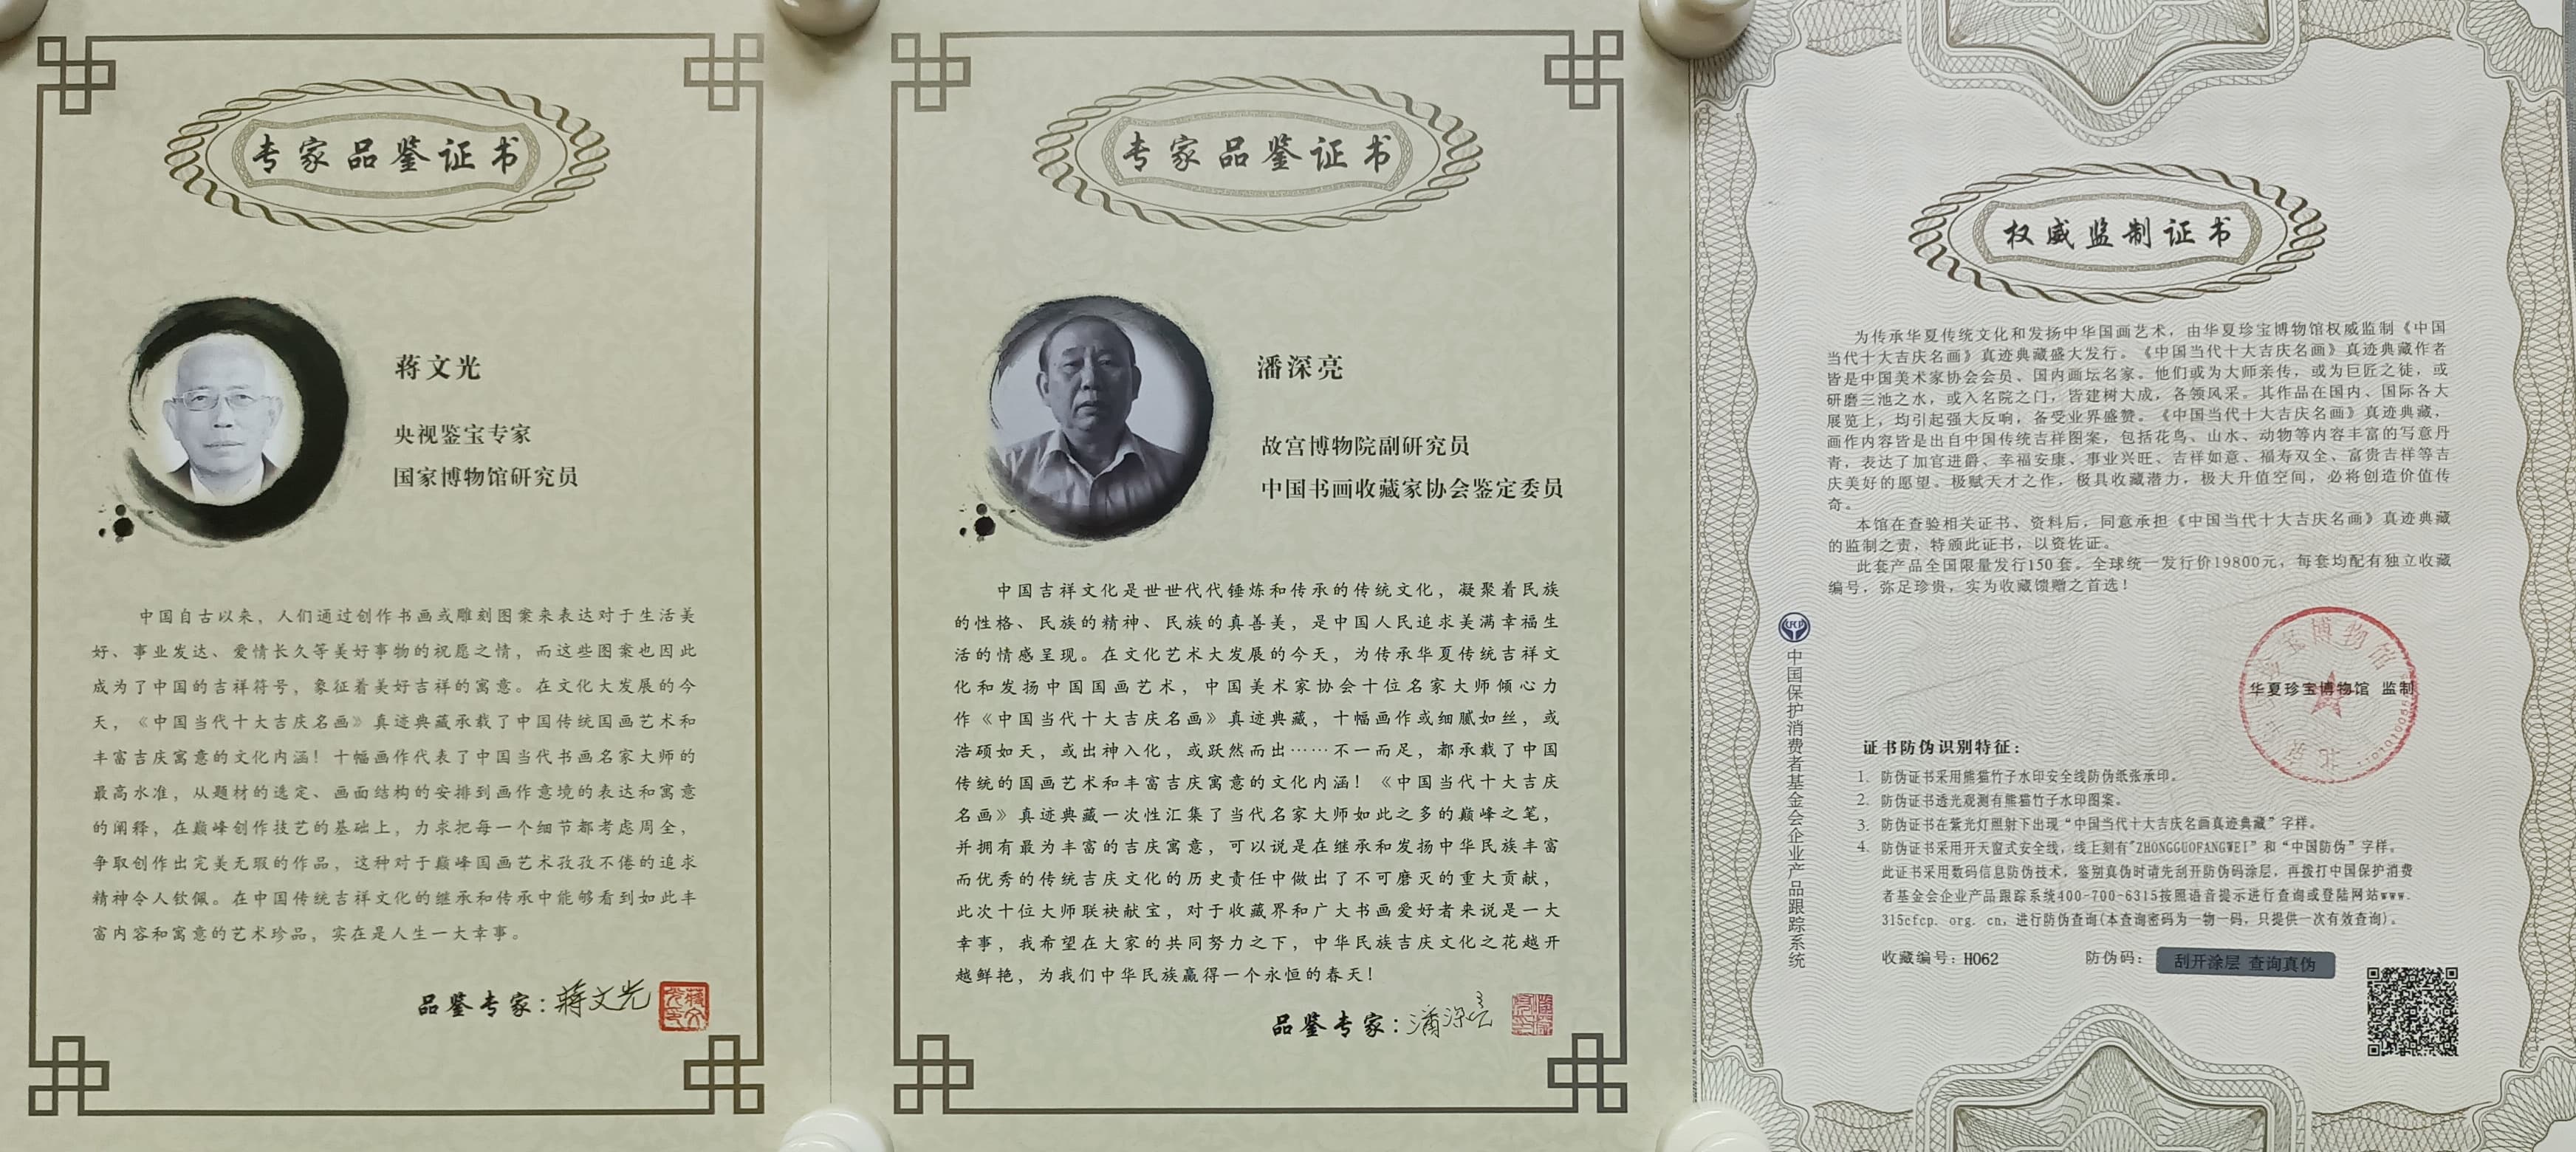 专家品鉴证书
蒋文光
央视鉴宝专家
国家博物馆研究员
中国自古以来，人们通过创作书画或雕刻图案来表达对于生活美
好、事业发达、爱情长久等美好事物的祝愿之情，而这些图案也因此
成为了中国的吉祥符号，象征着美好吉祥的寓意。在文化大发展的今
天，《中国当代十大吉庆名画》真迹典藏承载了中国传统国画艺术和
丰富吉庆寓意的文化内涵！十幅画作代表了中国当代书画名家大师的
最高水准，从题材的选定、画面结构的安排到画作意境的表达和寓意
的阐释，在巅峰创作技艺的基础上，力求把每一个细节都考虑周全，
争取创作出完美无瑕的作品，这种对于巅峰国画艺术孜孜不倦的追求
精神令人钦佩。在中国传统吉祥文化的继承和传承中能够看到如此丰
富内容和寓意的艺术珍品，实在是人生一大幸事。
品鉴专家：蒋文光
专家品鉴证书
潘深亮
故宫博物院副研究员
中国书画收藏家协会鉴定委员
中国吉祥文化是世世代代锤炼和传承的传统文化，凝聚着民族
的性格、民族的精神、民族的真善美，是中国人民追求美满幸福生
活的情感呈现。在文化艺术大发展的今天，为传承华夏传统吉祥文
化和发扬中国国画艺术，中国美术家协会十位名家大师倾心力
作《中国当代十大吉庆名画》真迹典藏，十幅画作或细腻如丝，或
浩硕如天，或出神入化，或跃然而出……不一而足，都承载了中国
传统的国画艺术和丰富吉庆寓意的文化内涵！《中国当代十大吉庆
名画》真迹典藏一次性汇集了当代名家大师如此之多的巅峰之笔，
并拥有最为丰富的吉庆寓意，可以说是在继承和发扬中华民族丰富
而优秀的传统吉庆文化的历史责任中做出了不可磨灭的重大贡献，
此次十位大师联袂献宝，对于收藏界和广大书画爱好者来说是一大
幸事，我希望在大家的共同努力之下，中华民族吉庆文化之花越开
越鲜艳，为我们中华民族赢得一个永恒的春天！
品鉴专家：潘深亮
权威监制证书
为传承华夏传统文化和发扬中华国画艺术，由华夏珍宝博物馆权威监制《中国
当代十大吉庆名画》真迹典藏盛大发行。《中国当代十大吉庆名画》真迹典藏作者
皆是中国美术家协会会员、国内画坛名家。他们或为大师亲传，或为巨匠之徒，或
研磨三池之水，或入名院之门，皆建树大成，各领风采。其作品在国内、国际各大
展览上，均引起强大反响，备受业界盛赞。《中国当代十大吉庆名画》真迹典藏，
画作内容皆是出自中国传统吉祥图案，包括花鸟、山水、动物等内容丰富的写意丹
青，表达了加官进爵、幸福安康、事业兴旺、吉祥如意、福寿双全、富贵吉祥等吉
庆美好的愿望。极赋天才之作，极具收藏潜力，极大升值空间，必将创造价值传
奇。
本馆在查验相关证书、资料后，同意承担《中国当代十大吉庆名画》真迹典藏
的监制之责，特颁此证书，以资佐证。
此套产品全国限量发行150套。全球统一发行价19800元，每套均配有独立收藏
编号，弥足珍贵，实为收藏馈赠之首选！
华夏珍宝博物馆 监制
中国保护消费者基金会企业产品跟踪系统
证书防伪识别特征：
1. 防伪证书采用熊猫竹子水印安全线防伪纸张承印。
2. 防伪证书透光观测有熊猫竹子水印图案。
3. 防伪证书在紫光灯照射下出现“中国当代十大吉庆名画真迹典藏”字样。
4. 防伪证书采用开天窗式安全线，线上刻有"ZHONGGUOFANGWEI"和“中国防伪”字样。
此证书采用数码信息防伪技术，鉴别真伪时请先刮开防伪码涂层，再拨打中国保护消费
者基金会企业产品跟踪系统400-700-6315按照语音提示进行查询或登陆网站www.
315cfcp. org. cn，进行防伪查询(本查询密码为一物一码，只提供一次有效查询)。
收藏编号：H062
防伪码：刮开涂层 查询真伪